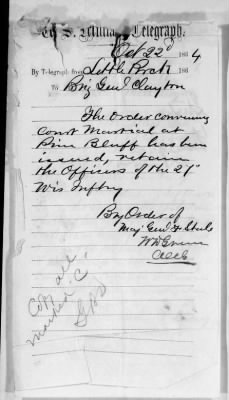 U. S. Military Telegraph.
Oct 22d 1864
By Telegraph from Little Rock 186
To Brig Genl Clayton
The Order convening
Court Martial at
Pine Bluff has been
issued, retain
the Officers of the 28"
Wis Inftry
By Order of
Maj Genl F Steele
WD Green
AAG
Copy all
marked C.